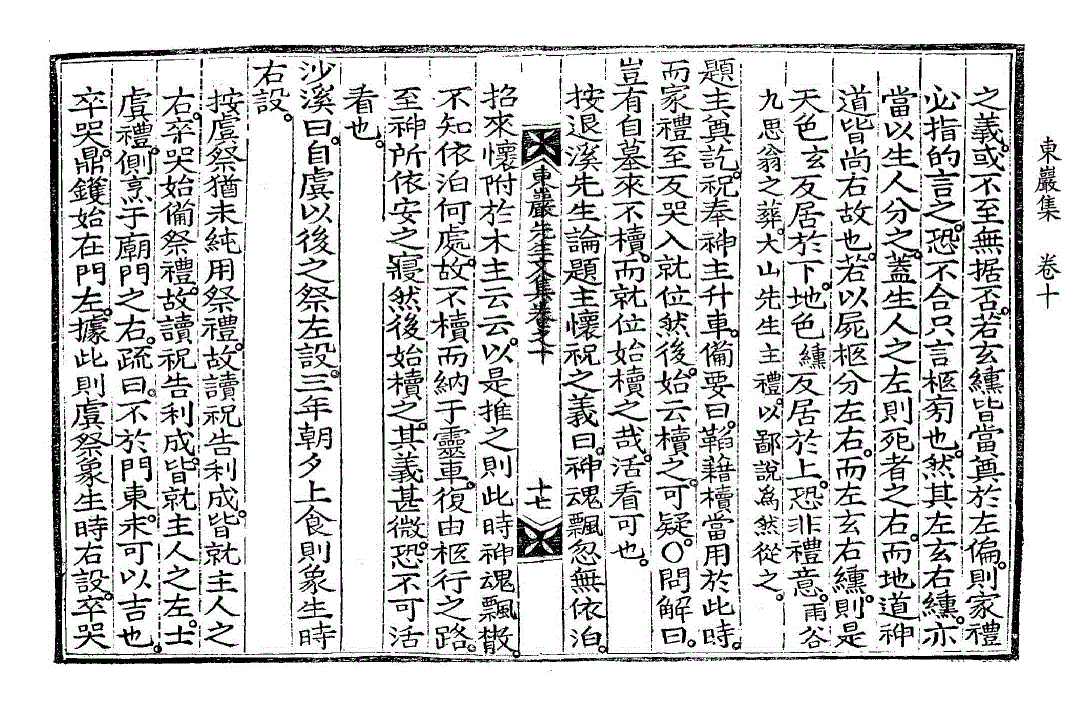 東巖集　卷十
之義。或不至無据否。若玄纁皆當奠於左偏。則家禮
必指的言之。恐不合只言柩旁也。然其左玄右纁。亦
當以生人分之。蓋生人之左則死者之右。而地道神
道皆尚右故也。若以屍柩分左右。而左玄右纁。則是
天色玄反居於下。地色纁反居於上。恐非禮意。雨谷
九思翁之葬。大山先生主禮。以鄙說為然從之。
題主奠訖。祝奉神主升車。備要曰。韜藉櫝當用於此時。
而家禮至反哭入就位然後。始云櫝之。可疑。○問解曰。
豈有自墓來不櫝。而就位始櫝之哉。活看可也。
按退溪先生論題主懷祝之義曰。神魂飄忽無依泊。
東巖先生文集卷之十
十七
招來懷附於木主云云。以是推之則此時神魂飄散。
不知依泊何處。故不櫝而納于靈車。復由柩行之路。
至神所依安之寢然後始櫝之。其義甚微。恐不可活
看也。
沙溪曰。自虞以後之祭左設。三年朝夕上食則象生時
右設。
按虞祭猶未純用祭禮。故讀祝告利成。皆就主人之
右。卒哭始備祭禮。故讀祝告利成。皆就主人之左。士
虞禮。側烹于廟門之右。疏曰。不於門東。未可以吉也。
卒哭。鼎鑊始在門左。據此則虞祭象生時右設。卒哭